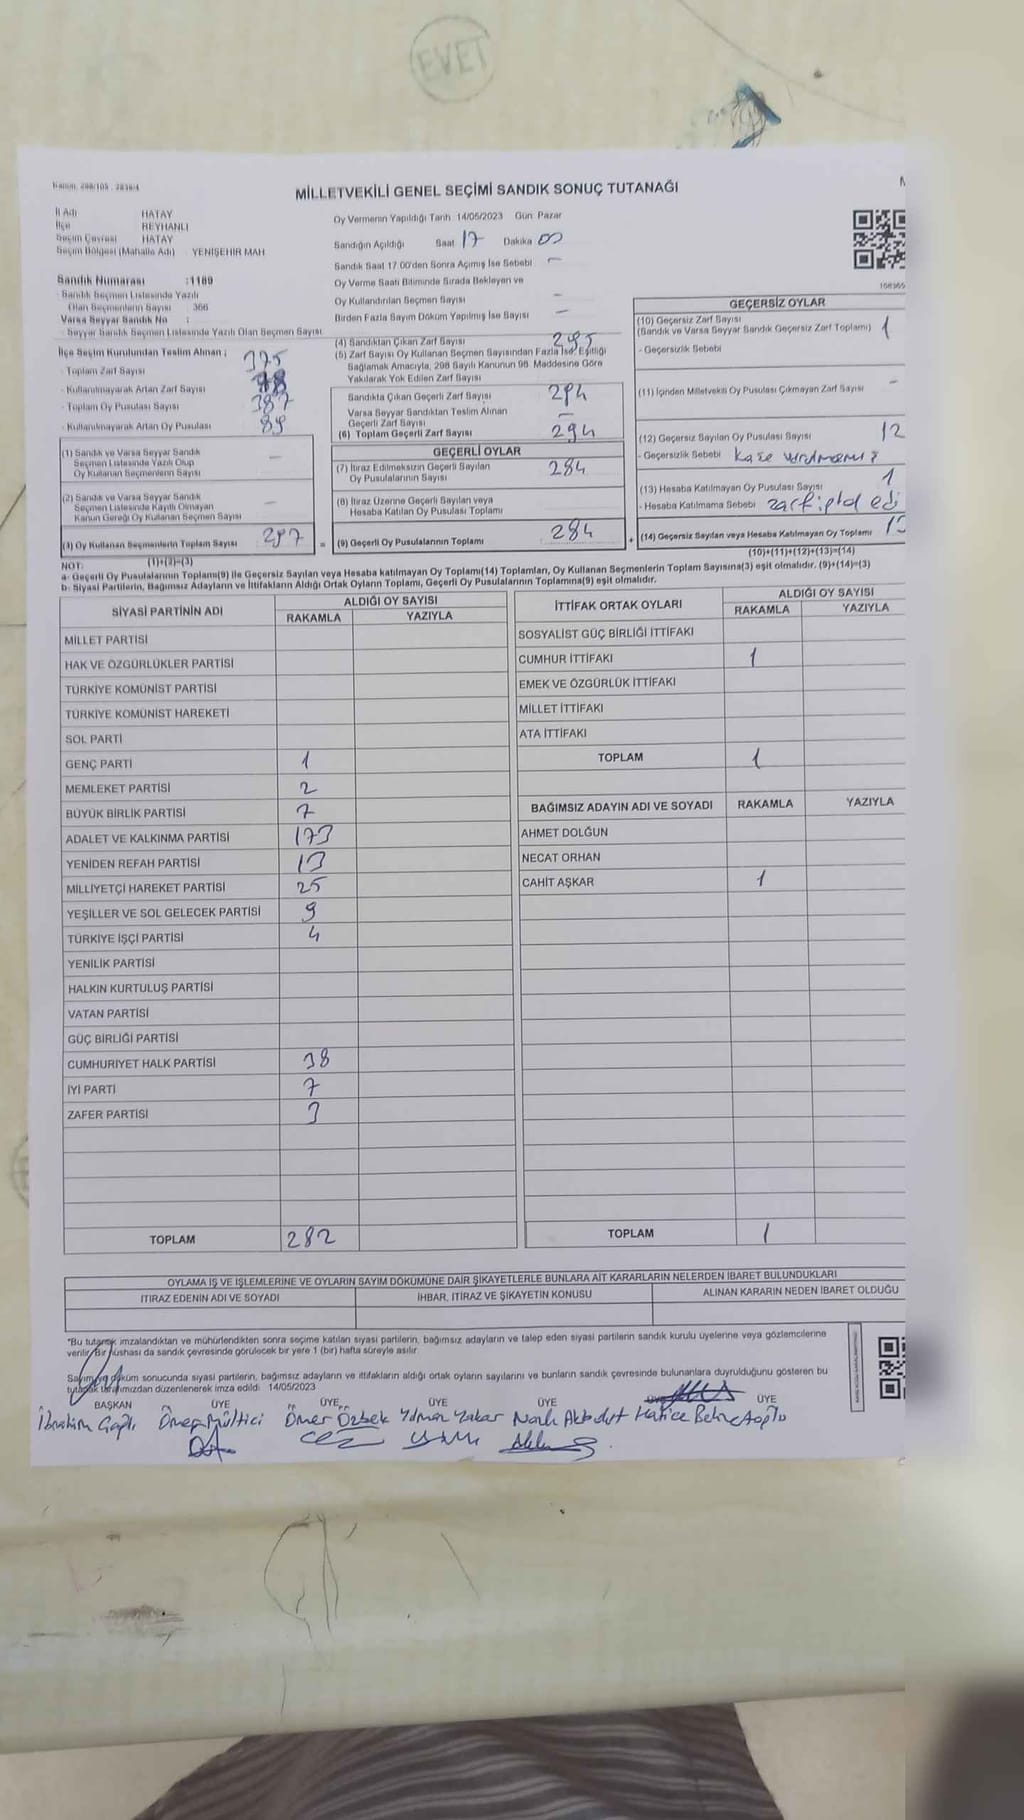 EVET
Kanun: 298/105 - 2839/4
MİLLETVEKİLİ GENEL SEÇİMİ SANDIK SONUÇ TUTANAĞI
İl Adı HATAY
İlçe REYHANLI
Seçim Çevresi HATAY
Seçim Bölgesi (Mahalle Adı) YENİŞEHİR MAH
Sandık Numarası :1189
- Sandık Seçmen Listesinde Yazılı
Olan Seçmenlerin Sayısı 366
Varsa Seyyar Sandık No :
- Seyyar Sandık Seçmen Listesinde Yazılı Olan Seçmen Sayısı
İlçe Seçim Kurulundan Teslim Alınan ;
- Toplam Zarf Sayısı 375
- Kullanılmayarak Artan Zarf Sayısı
- Toplam Oy Pusulası Sayısı 387
- Kullanılmayarak Artan Oy Pusulası 89
(1) Sandık ve Varsa Seyyar Sandık
Seçmen Listesinde Yazılı Olup
Oy Kullanan Seçmenlerin Sayısı —
(2) Sandık ve Varsa Seyyar Sandık
Seçmen Listesinde Kayıtlı Olmayan
Kanun Gereği Oy Kullanan Seçmen Sayısı —
(3) Oy Kullanan Seçmenlerin Toplam Sayısı 297 =
(1)+(2)=(3)
Oy Vermenin Yapıldığı Tarih 14/05/2023 Gün: Pazar
Sandığın Açıldığı Saat 17 Dakika 00
Sandık Saat 17.00'den Sonra Açılmış İse Sebebi —
Oy Verme Saati Bitiminde Sırada Bekleyen ve
Oy Kullandırılan Seçmen Sayısı —
Birden Fazla Sayım Döküm Yapılmış İse Sayısı —
(4) Sandıktan Çıkan Zarf Sayısı 295
(5) Zarf Sayısı Oy Kullanan Seçmen Sayısından Fazla İse, Eşitliği
Sağlamak Amacıyla, 298 Sayılı Kanunun 98. Maddesine Göre
Yakılarak Yok Edilen Zarf Sayısı
Sandıkta Çıkan Geçerli Zarf Sayısı 294
Varsa Seyyar Sandıktan Teslim Alınan
Geçerli Zarf Sayısı —
(6) Toplam Geçerli Zarf Sayısı 294
GEÇERLİ OYLAR
(7) İtiraz Edilmeksizin Geçerli Sayılan
Oy Pusulasının Sayısı 284
(8) İtiraz Üzerine Geçerli Sayılan veya
Hesaba Katılan Oy Pusulası Toplamı
(9) Geçerli Oy Pusulalarının Toplamı 284 +
GEÇERSİZ OYLAR
(10) Geçersiz Zarf Sayısı
(Sandık ve Varsa Seyyar Sandık Geçersiz Zarf Toplamı) 1
- Geçersizlik Sebebi
(11) İçinden Milletvekili Oy Pusulası Çıkmayan Zarf Sayısı —
(12) Geçersiz Sayılan Oy Pusulası Sayısı 12
- Geçersizlik Sebebi
(13) Hesaba Katılmayan Oy Pusulası Sayısı 1
- Hesaba Katılmama Sebebi
(14) Geçersiz Sayılan veya Hesaba Katılmayan Oy Toplamı
(10)+(11)+(12)+(13)=(14)
NOT:
a- Geçerli Oy Pusulalarının Toplamı(9) ile Geçersiz Sayılan veya Hesaba katılmayan Oy Toplamı(14) Toplamları, Oy Kullanan Seçmenlerin Toplam Sayısına(3) eşit olmalıdır. (9)+(14)=(3)
b- Siyasi Partilerin, Bağımsız Adayların ve İttifakların Aldığı Ortak Oyların Toplamı, Geçerli Oy Pusulalarının Toplamına(9) eşit olmalıdır.
SİYASİ PARTİNİN ADI ALDIĞI OY SAYISI
RAKAMLA YAZIYLA
MİLLET PARTİSİ
HAK VE ÖZGÜRLÜKLER PARTİSİ
TÜRKİYE KOMÜNİST PARTİSİ
TÜRKİYE KOMÜNİST HAREKETİ
SOL PARTİ
GENÇ PARTİ 1
MEMLEKET PARTİSİ 2
BÜYÜK BİRLİK PARTİSİ 7
ADALET VE KALKINMA PARTİSİ 173
YENİDEN REFAH PARTİSİ 13
MİLLİYETÇİ HAREKET PARTİSİ 25
YEŞİLLER VE SOL GELECEK PARTİSİ 9
TÜRKİYE İŞÇİ PARTİSİ 4
YENİLİK PARTİSİ
HALKIN KURTULUŞ PARTİSİ
VATAN PARTİSİ
GÜÇ BİRLİĞİ PARTİSİ
CUMHURİYET HALK PARTİSİ 38
İYİ PARTİ 7
ZAFER PARTİSİ 3
TOPLAM 282
İTTİFAK ORTAK OYLARI ALDIĞI OY SAYISI
RAKAMLA YAZIYLA
SOSYALİST GÜÇ BİRLİĞİ İTTİFAKI
CUMHUR İTTİFAKI 1
EMEK VE ÖZGÜRLÜK İTTİFAKI
MİLLET İTTİFAKI
ATA İTTİFAKI
TOPLAM 1
BAĞIMSIZ ADAYIN ADI VE SOYADI RAKAMLA YAZIYLA
AHMET DOLĞUN
NECAT ORHAN
CAHİT AŞKAR 1
TOPLAM 1
OYLAMA İŞ VE İŞLEMLERİNE VE OYLARIN SAYIM DÖKÜMÜNE DAİR ŞİKAYETLERLE BUNLARA AİT KARARLARIN NELERDEN İBARET BULUNDUKLARI
İTİRAZ EDENİN ADI VE SOYADI İHBAR, İTİRAZ VE ŞİKAYETİN KONUSU ALINAN KARARIN NEDEN İBARET OLDUĞU
"Bu tutanak imzalandıktan ve mühürlendikten sonra seçime katılan siyasi partilerin, bağımsız adayların ve talep eden siyasi partilerin sandık kurulu üyelerine veya gözlemcilerine
verilir. Bir nüshası da sandık çevresinde görülecek bir yere 1 (bir) hafta süreyle asılır.
Sayım ve döküm sonucunda siyasi partilerin, bağımsız adayların ve ittifakların aldığı ortak oyların sayılarını ve bunların sandık çevresinde bulunanlara duyrulduğunu gösteren bu
tutanak tarafımızdan düzenlenerek imza edildi. 14/05/2023
BAŞKAN ÜYE ÜYE ÜYE ÜYE ÜYE
İbrahim Ömer Ömer Özbek Yılmaz Yakar Hatice